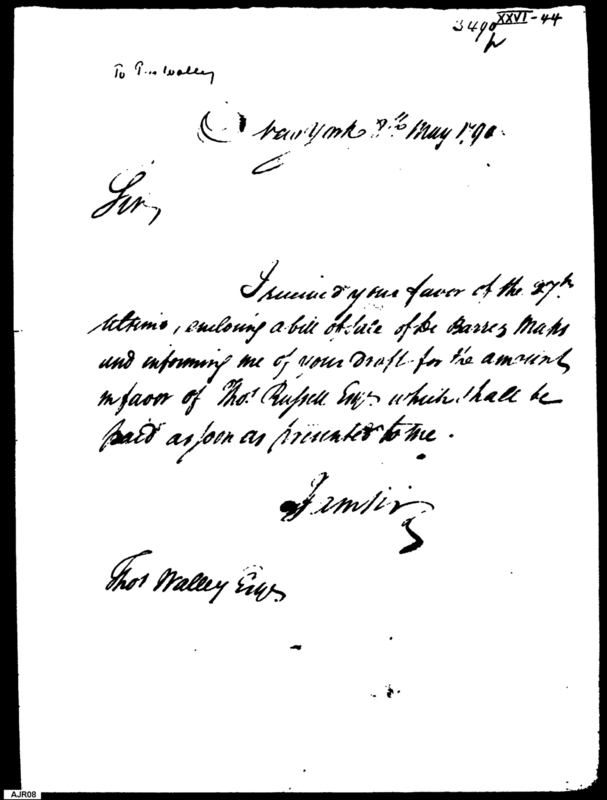 3490 XXVI-44
To Tho Walley
New York 8th May 1790
Sir,
I received your favor of the 27th
Ultimo, enclosing a bill of Sale of De Barres Maps
and informing me of your Draft for the amount
in favor of Thos Russell Esqr which shall be
paid as soon as presented to me.
I am Sir
Thos Walley Esqr
AJR08